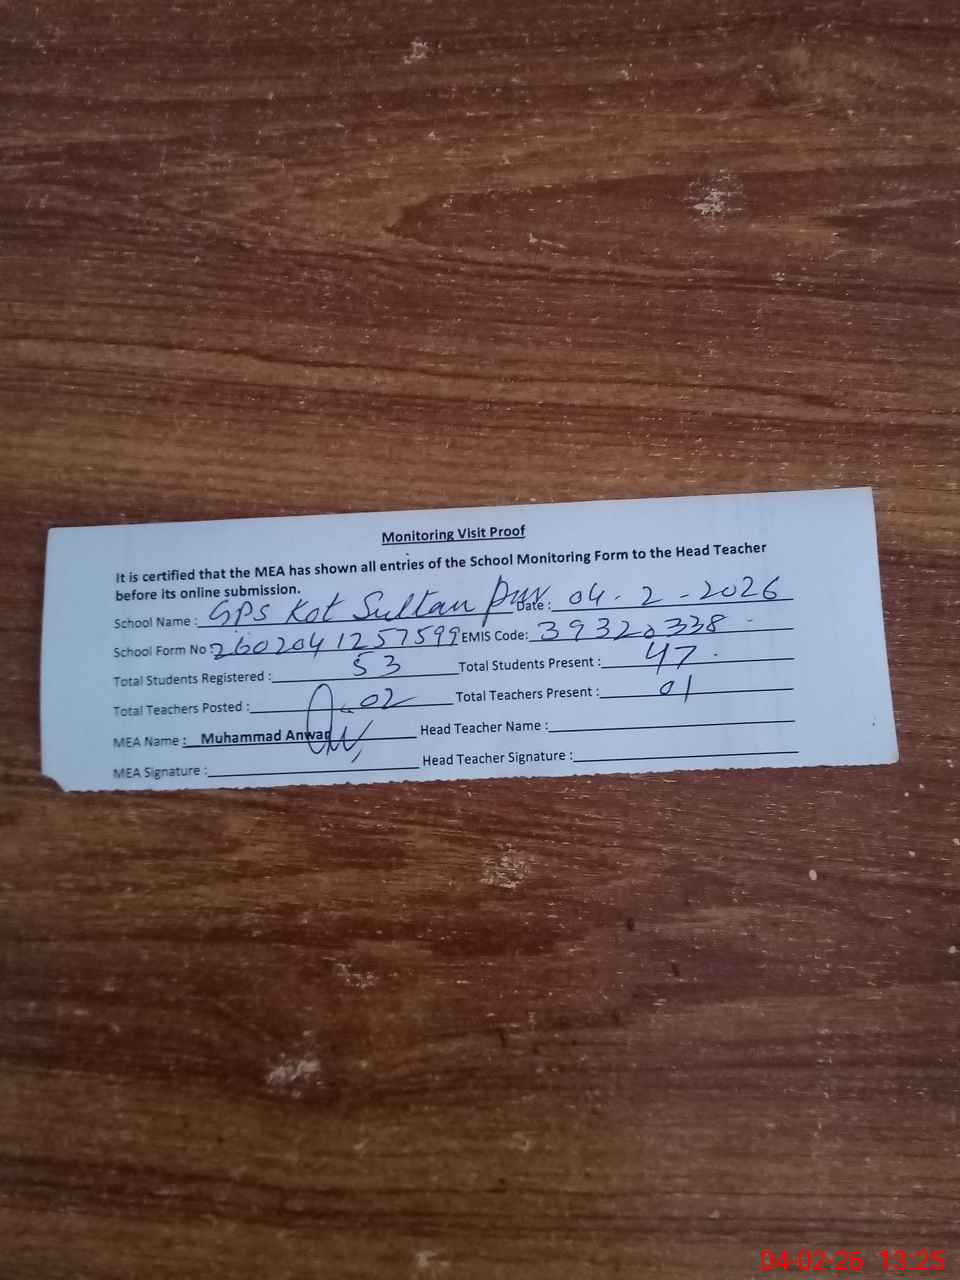 Monitoring Visit Proof
It is certified that the MEA has shown all entries of the School Monitoring Form to the Head Teacher
before its online submission.
School Name : GPS Kot Sultan Pur Date : 04 - 2 - 2026
School Form No : 2602041257599 EMIS Code: 39320338
Total Students Registered : 53 Total Students Present : 47
Total Teachers Posted : 02 Total Teachers Present : 01
MEA Name : Muhammad Anwar Head Teacher Name :
MEA Signature : Head Teacher Signature :
04-02-26 13:25